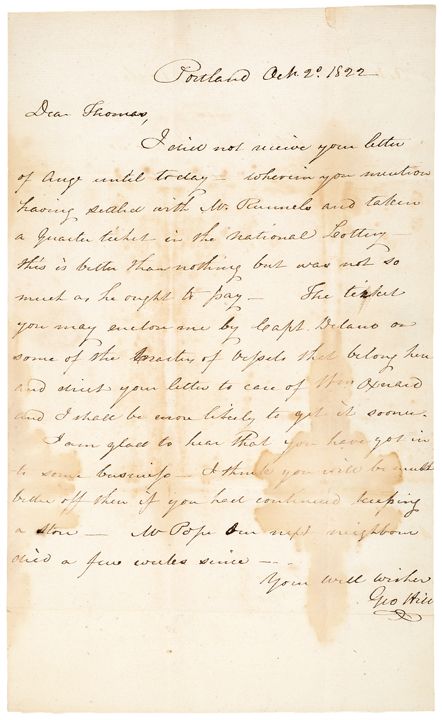 Portland Oct. 2d. 1822
Dear Thomas,
I did not receive your letter
of Augt until today — wherein you mention
having settled with Mr. Runnels and taken
a Quarter ticket in the National Lottery —
this is better than nothing but was not so
much as he ought to pay — The ticket
you may enclose me by Capt Delano or
some of the Masters of Vessels that belong here
and direct your letter to care of Wm Oxnard
and I shall be more likely to get it sooner.
I am glad to hear that you have got in
to some business — I think you will be much
better off then if you had continued keeping
a store — Mr Pope our next neighbour
died a few weeks since —
Your well wisher
Geo Hill